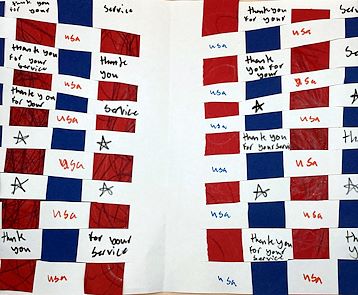 thank you
for your
service
usa
thank you
for your
service
thank
you
usa
thank you
for your
service
usa
usa
usa
thank
you
for your
service
usa
thank you
for your
usa
usa
thank you
for your
usa
usa
usa
usa
thank you
for your service
usa
usa
usa
usa
thank you
for your
service
usa
usa